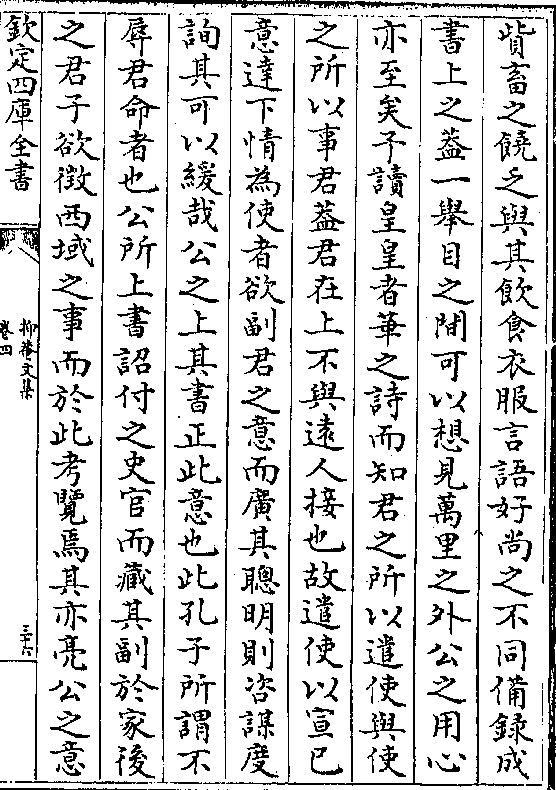 貲畜之饒乏與其飲食衣服言語好尚之不同備録成
書上之葢一舉目之間可以想見萬里之外公之用心
亦至矣予讀皇皇者華之詩而知君之所以遣使與使
之所以事君葢君在上不與遠人接也故遣使以宣已
意達下情為使者欲副君之意而廣其聰明則咨謀度
詢其可以緩哉公之上其書正此意也此孔子所謂不
辱君命者也公所上書詔付之史官而藏其副於家後
之君子欲徴西域之事而於此考覽焉其亦亮公之意
欽定四庫全書
抑菴文集
卷四
三十六